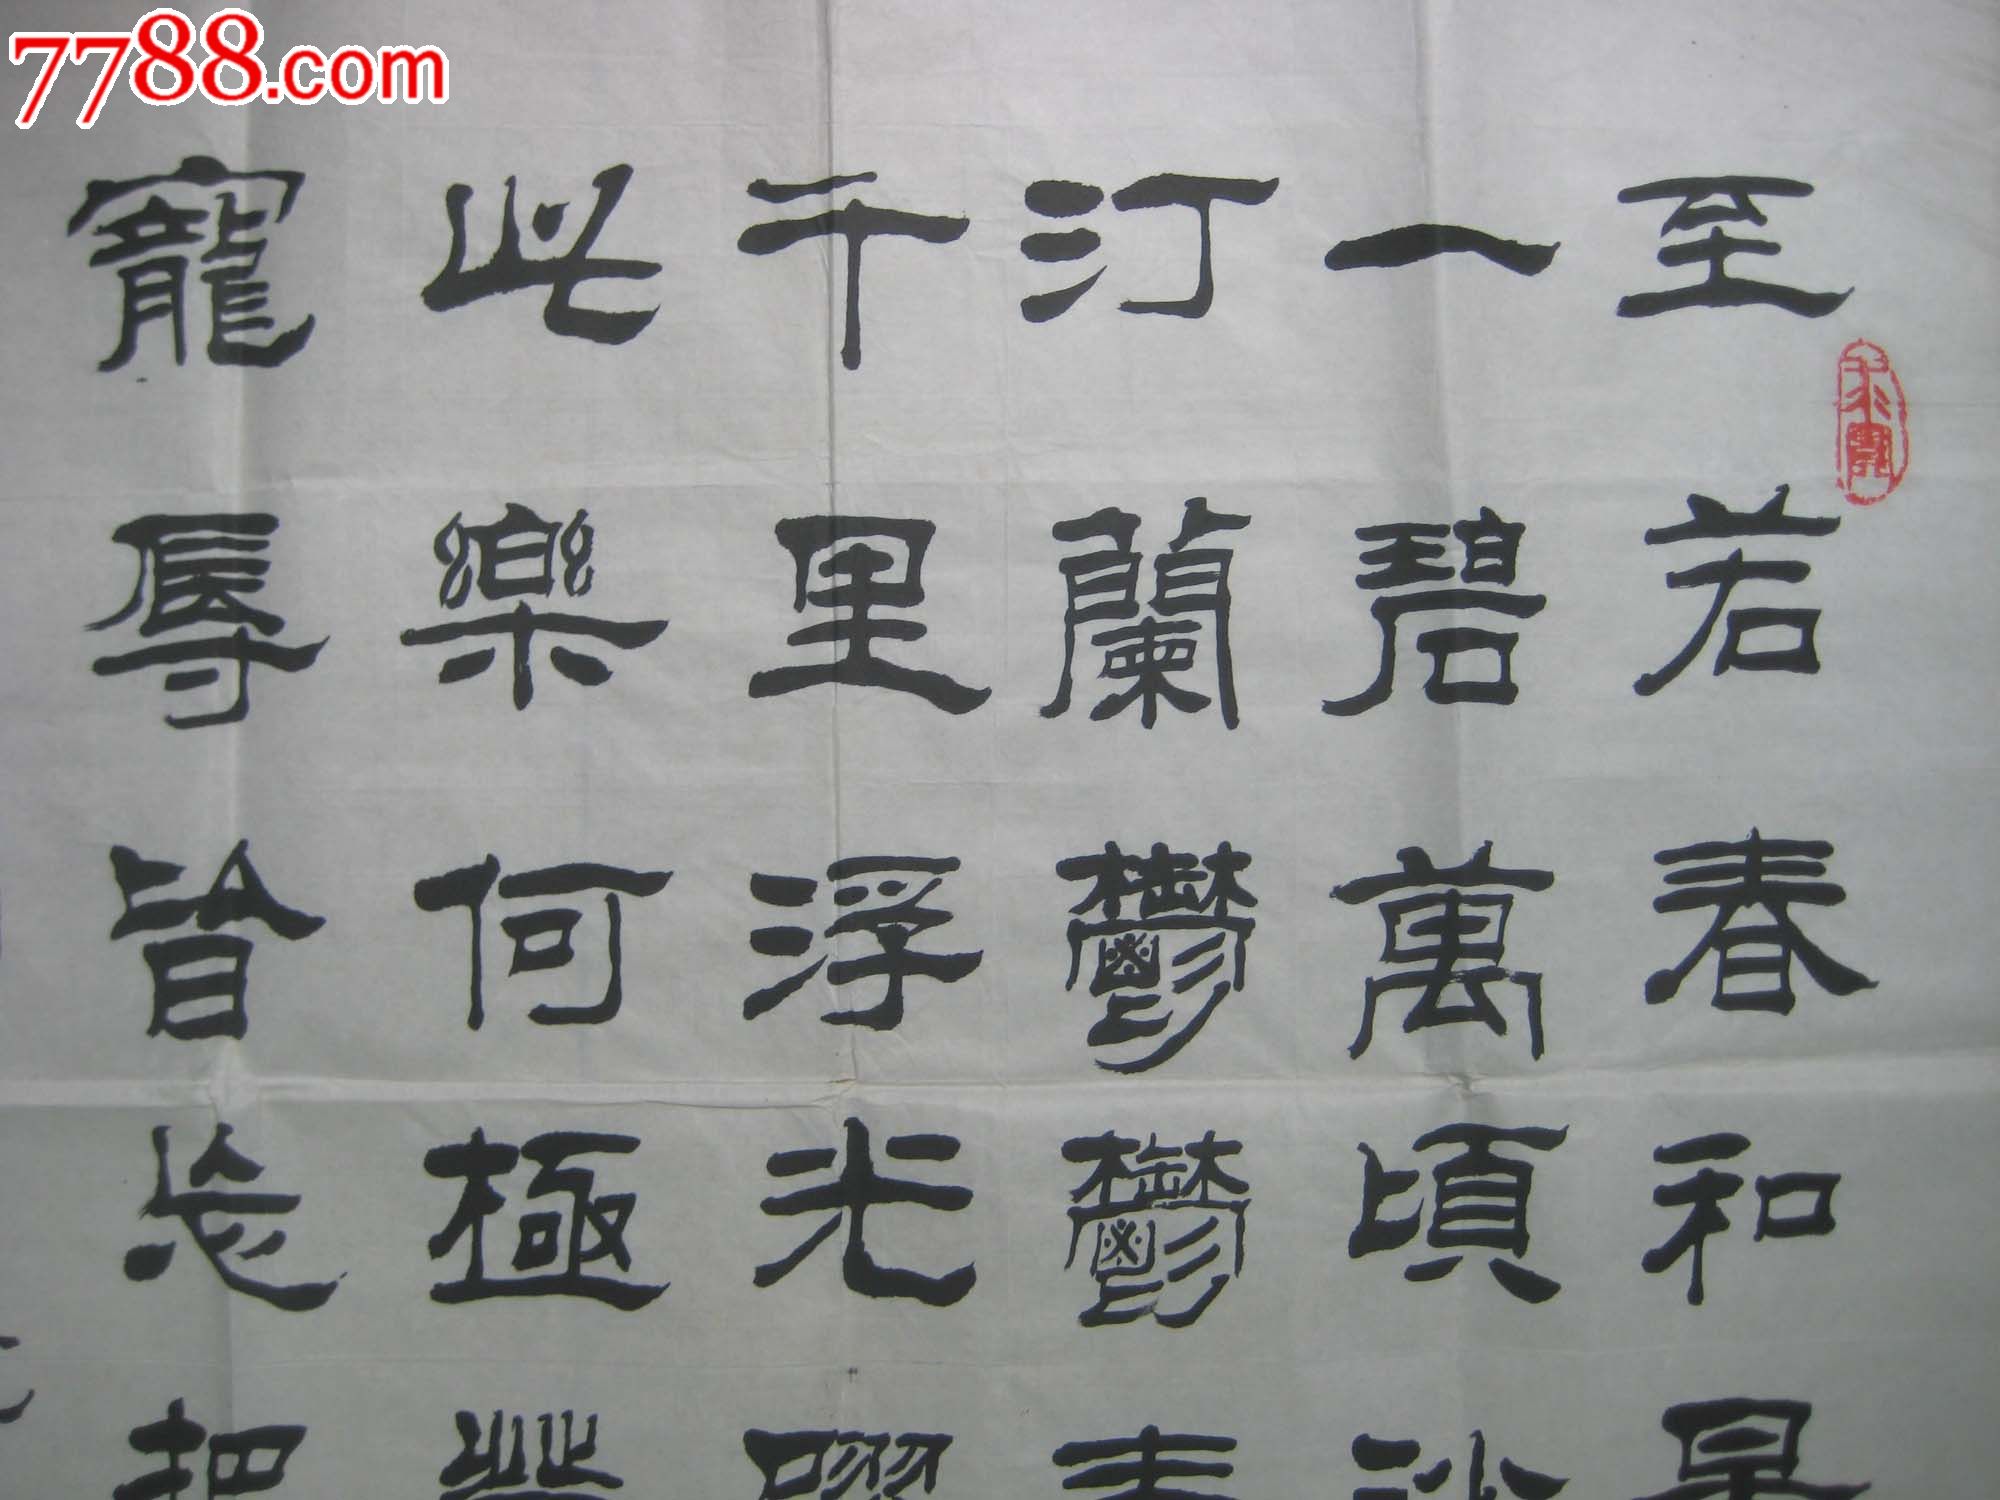 7788.com
至若春和景
一碧萬頃沙
汀蘭鬱鬱青
千里浮光躍
此樂何極登
寵辱皆忘把